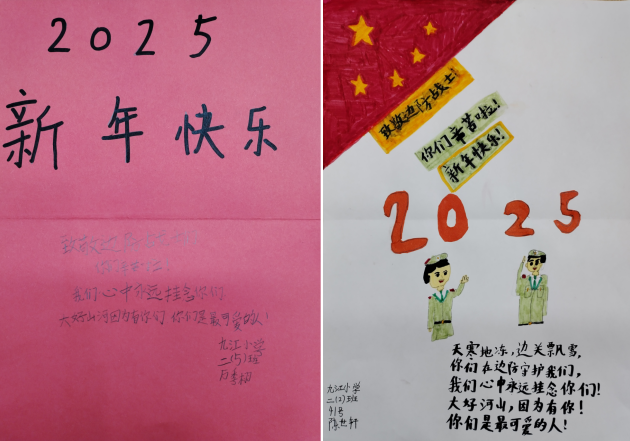 2025
新年快乐
致敬边防战士
我们心中永远挂念你们
大好山河因为有你们 你们是最可爱的人!
九江小学
二(5)班
致敬边防战士!
你们辛苦啦!
新年快乐!
2025
天寒地冻,边关飘雪,
你们在边防守护我们,
我们心中永远挂念你们!
大好河山,因为有你!
你们是最可爱的人!
九江小学
二(2)班
41号
陈世轩